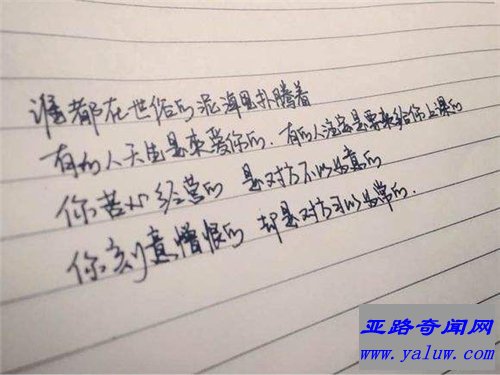 谁都在世俗的泥海里扑腾着
有的人天生是来爱你的.有的人注定是要来给你上课的
你苦心经营的 是对方不以为意的
你刻意憎恨的 却是对方习以为常的.
亚路奇闻网
www.yaluw.com